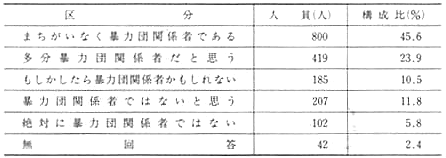 区分 人員(人) 構成比(%)
まちがいなく暴力団関係者である 800 45.6
多分暴力団関係者だと思う 419 23.9
もしかしたら暴力団関係者かもしれない 185 10.5
暴力団関係者ではないと思う 207 11.8
絶対に暴力団関係者ではない 102 5.8
無回答 42 2.4